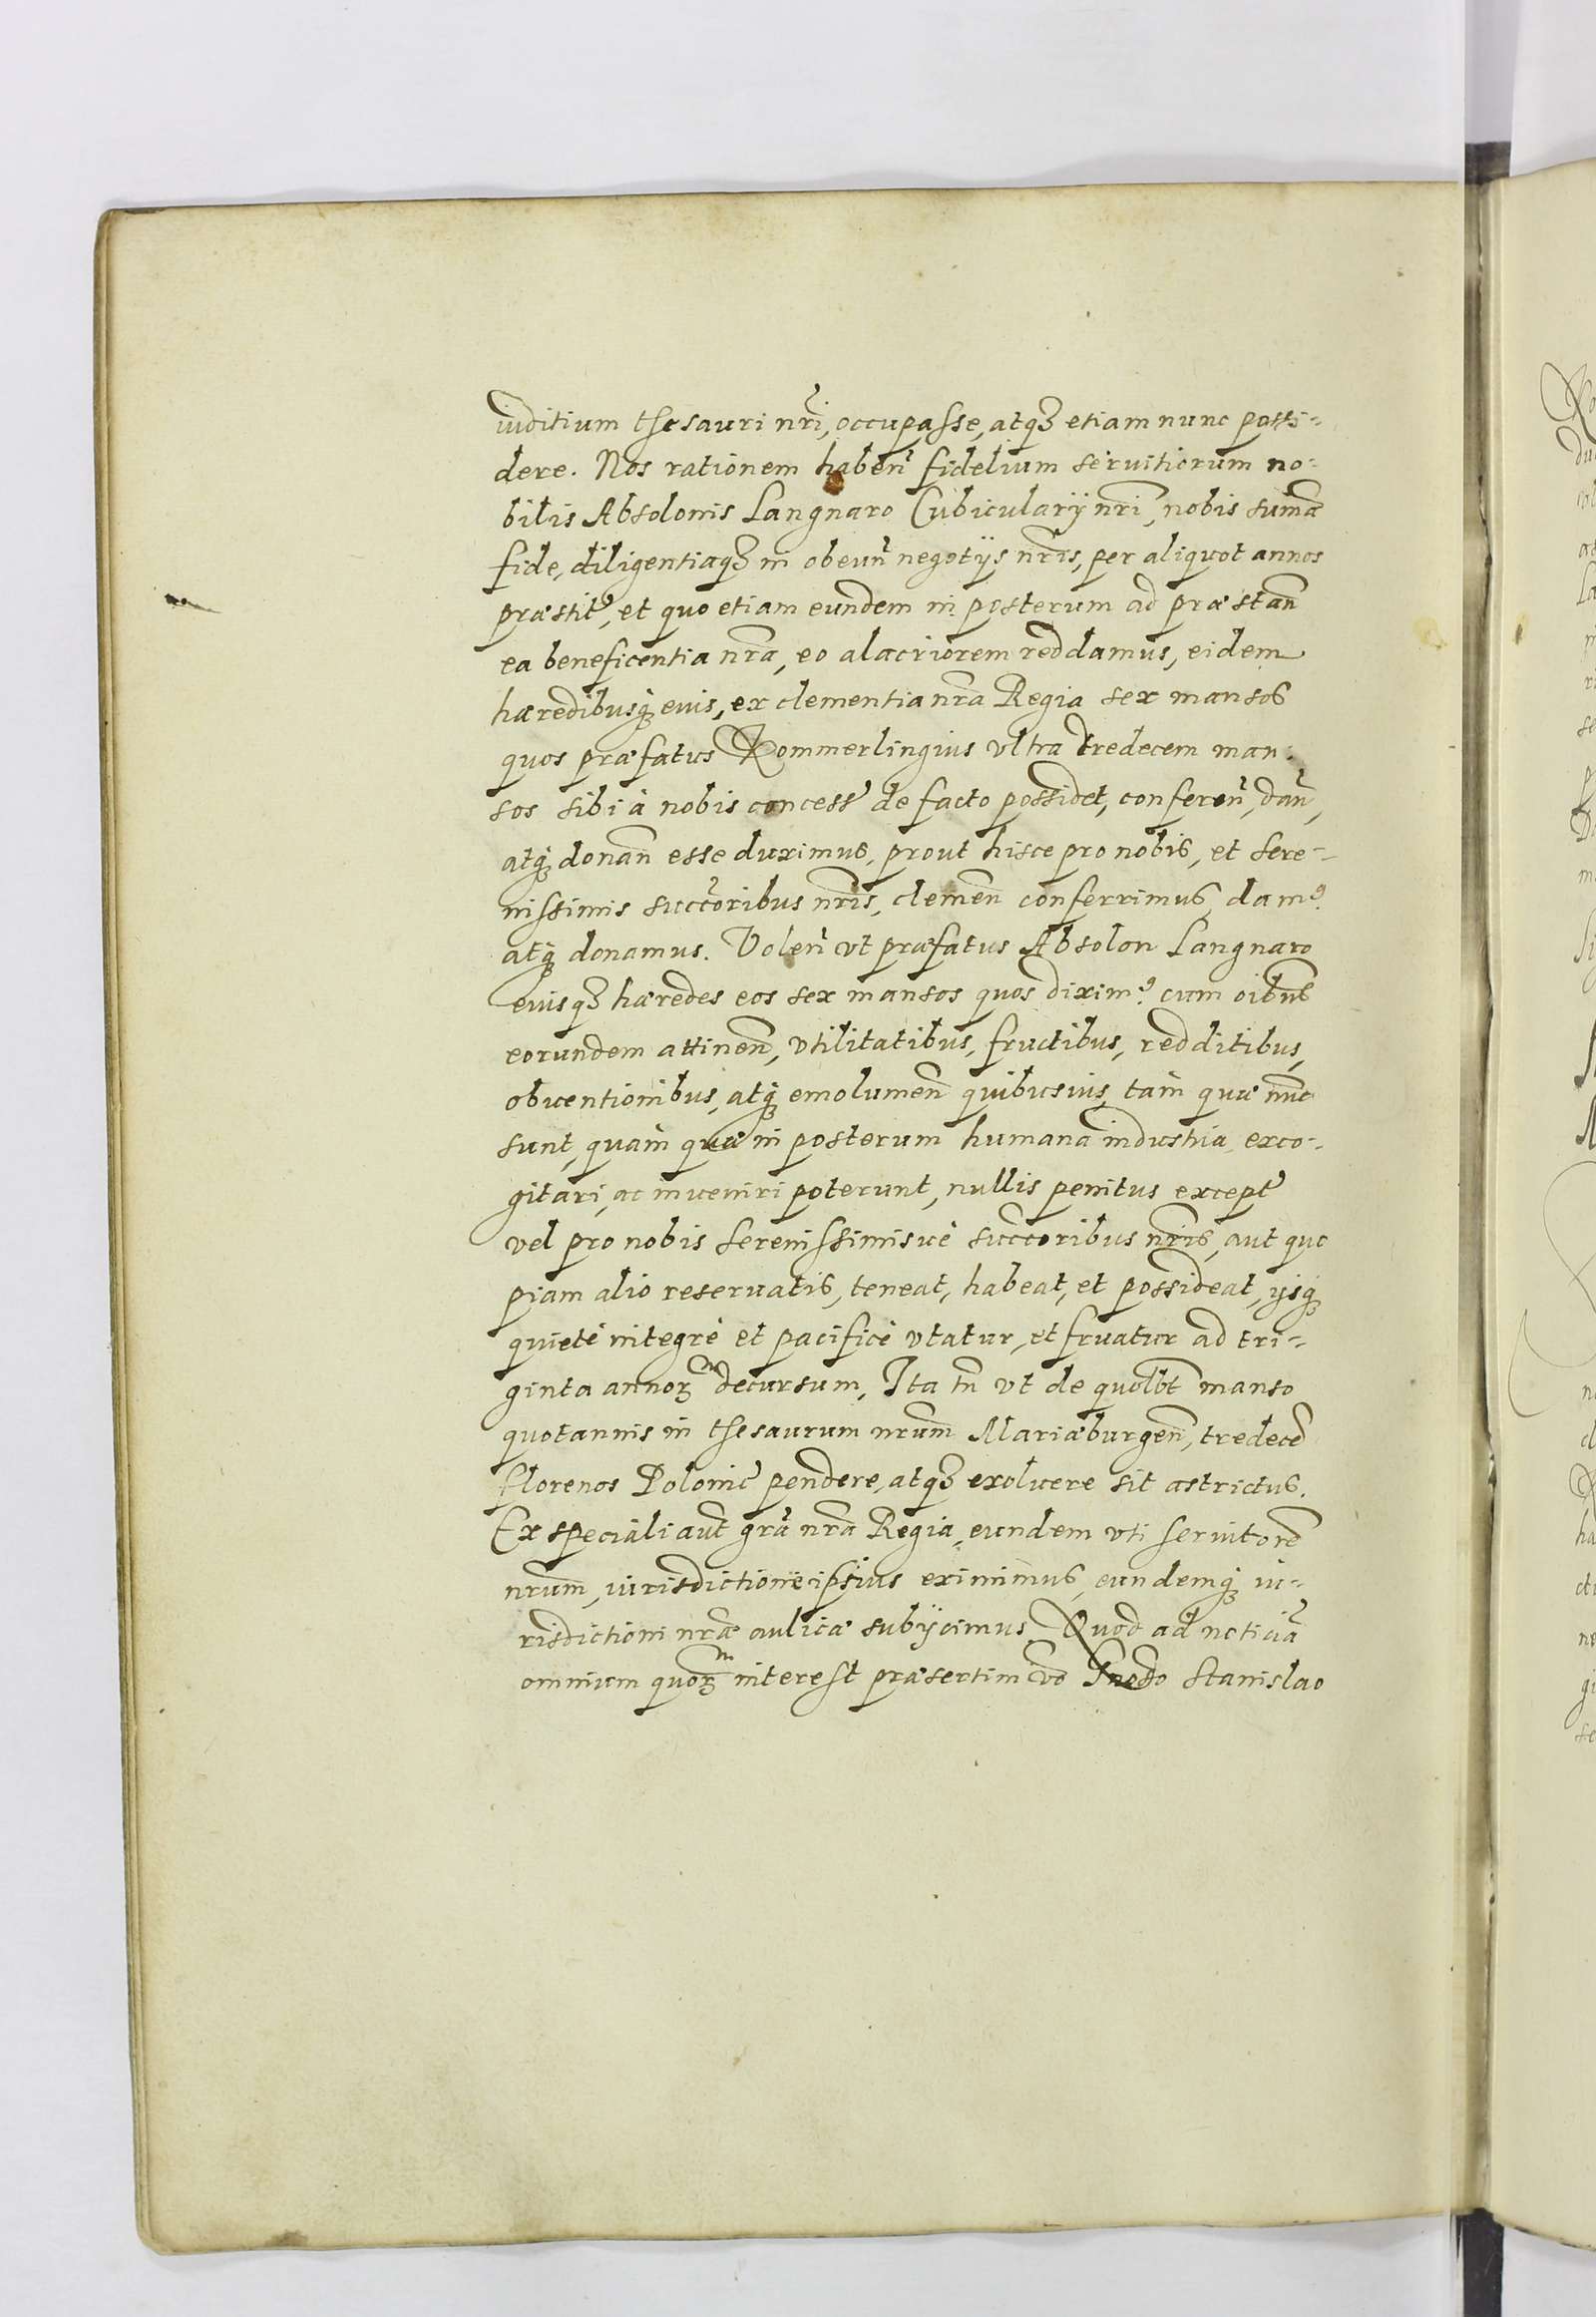 iuditium thesauri nrĩ, occupasse, atq3 etiam nunc possi-
dere. Nos rationem habeñ fidelium seruitiorum no-
bilis Absolonis Langnaro Cubicularij nrĩ, nobis sum̃a
fide, diligentiaq3 in obeuñ negotijs nrĩs, per aliquot annos
præstit̃, et quo etiam eundem in posterum ad præstañ
ea beneficentia nrã, eo alacriorem reddamus, eidem
hæredibusq3 eius, ex clementia nrã Regia sex mansos
quos præfatus Kommerlingius vltra tredecem man-
sos sibi à nobis concess̃ de facto possidet, confereñ, dañ,
atq3 donañ esse duximus, prout hisce pro nobis, et Sere-
nissimis succ̃oribus nrĩs, clemeñ conferrimus, dam9
atq3 donamus. Voleñ vt præfatus Absolon Langnaro
eiusq3 hæredes eos sex mansos quos dixim9 cum oib̃us
eorundem attineñ, vtilitatibus, fructibus, redditibus,
obuentionibus, atq3 emolumeñ quibusuis, tam̀ quæ nũc
sunt, quam̀ quæ in posterum humana industria exco-
gitari, ac inueniri poterunt, nullis penitus except̃
vel pro nobis Serenissimisuè succ̃oribus nrĩs, aut quo
piam alio reseruatis, teneat, habeat, et possideat, ijsq3
quietè integrè et pacificè vtatur, et fruatur ad tri-
ginta annor3m decursum, Ita tñ vt de quolb̃t manso
quotannis in thesaurum nrũm Mariæburgeñ, tredecẽ
florenos Polonic̃ pendere, atq3 exoluere sit astrictus.
Ex speciali aut̃ grã nrã Regia, eundem vti seruitorẽ
nrũm, iurisdictionè ipsius eximimus, eundemq3 iu-
risdictioni nræ̃ aulicæ subijcimus. Quod ad noticiã
omnium quor3m interest præsertim ṽo Gnoso Stanislao